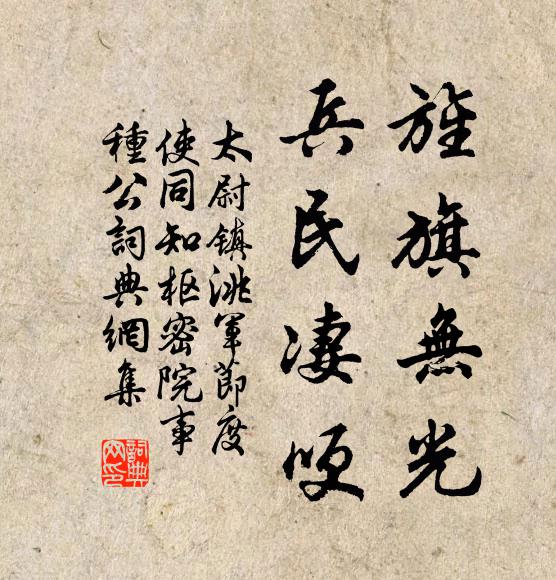 旌旗無光
兵民凄哽
太尉鎮洮軍節度
使同知樞密院事
種公詞典網集
詞典網印